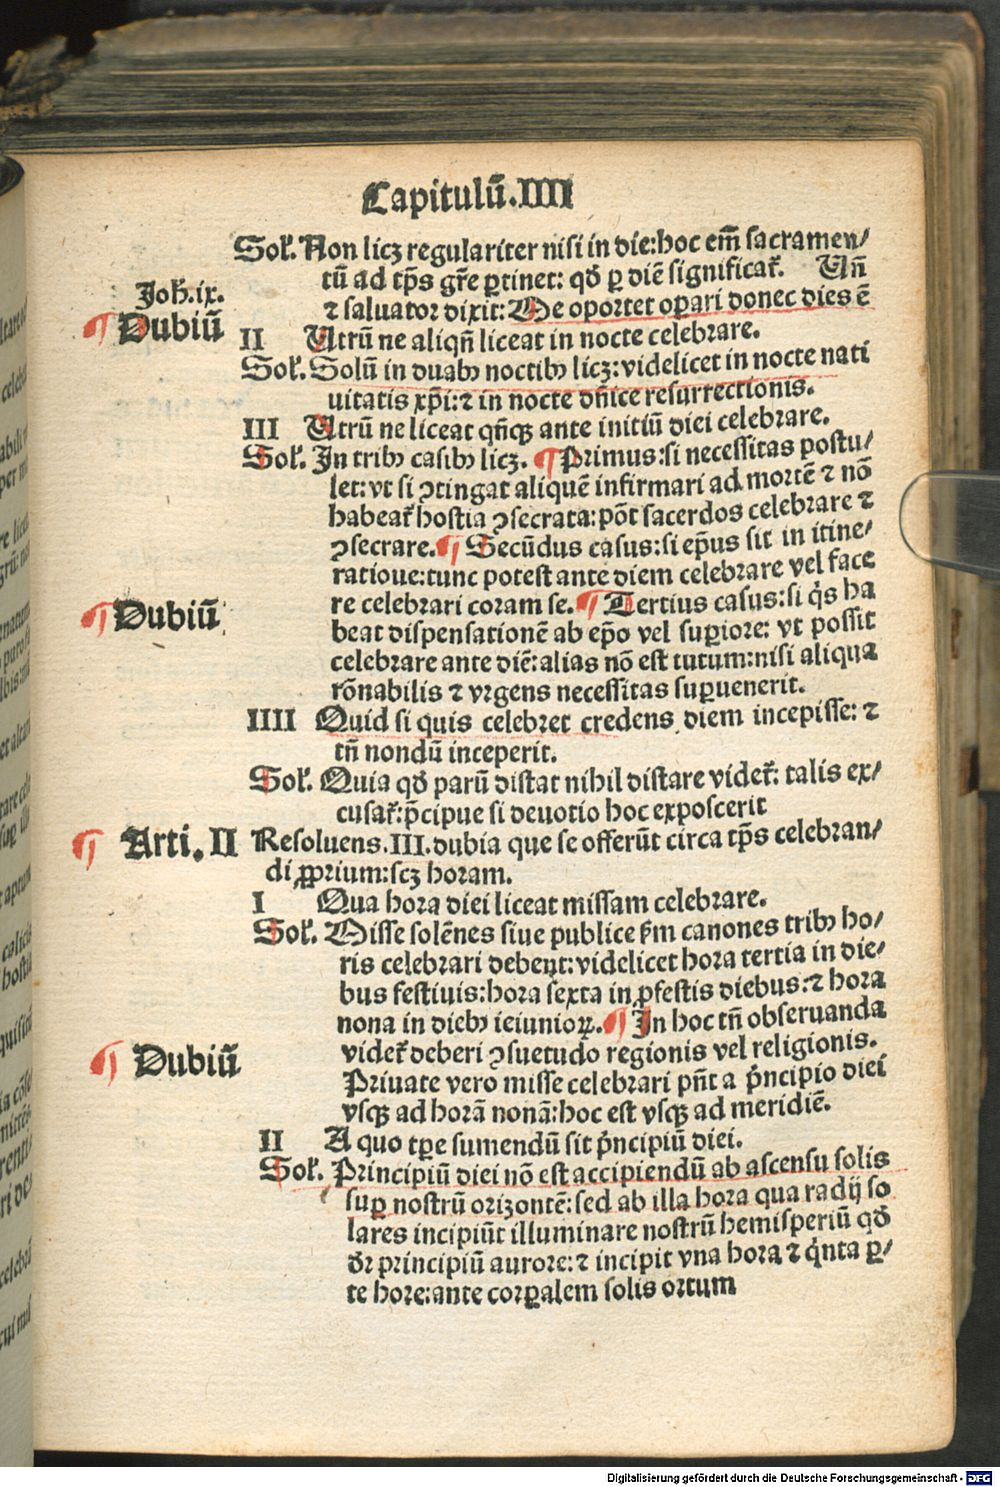 Capitulū.IIII
Sol̄. Non licꝫ regulariter nisi in die:hoc em̄ sacramen/
tū ad tp̄s gr̄e ꝑtinet: qd̄ ꝑ diē significat̄. Un̄
Joh̄.ix.
⁊ saluator dixit: Me oportet oꝑari donec dies ē
¶ Dubiū
II Utrū ne aliqn̄ liceat in nocte celebrare.
Sol̄. Solū in duabꝰ noctibꝰ licꝫ:videlicet in nocte nati
uitatis xp̄i:⁊ in nocte dn̄ice resurrectionis.
III Utrū ne liceat qn̄qꝫ ante initiū diei celebrare.
Sol̄. In tribꝰ casibꝰ licꝫ. ¶ Primus:si necessitas postu/
let:vt si ꝯtingat aliquē infirmari ad mortē ⁊ nō
habeat̄ hostia ꝯsecrata:pōt sacerdos celebrare ⁊
ꝯsecrare. ¶ Secūdus casus:si ep̄us sit in itine/
ratioue:tunc potest ante diem celebrare vel face
re celebrari coram se. ¶ Tertius casus:si q̇s ha
¶ Dubiū
beat dispensationē ab ep̄o vel suꝑiore: vt possit
celebrare ante diē:alias nō est tutum:nisi aliqua
rōnabilis ⁊ vrgens necessitas suꝑuenerit.
IIII Quid si quis celebret credens diem incepisse: ⁊
tn̄ nondū inceperit.
Sol̄. Quia qd̄ parū distat nihil distare videt̄: talis ex/
cusat̄:p̄cipue si deuotio hoc exposcerit
¶ Arti. II Resoluens.III.dubia que se offerūt circa tp̄s celebran/
di ꝓprium:scꝫ horam.
I Qua hora diei liceat missam celebrare.
Sol̄. Misse solēnes siue publice ẜm canones tribꝰ ho/
ris celebrari debent:videlicet hora tertia in die/
bus festiuis:hora sexta in ꝓfestis diebus:⁊ hora
nona in diebꝰ ieiunioꝝ. ¶ In hoc tn̄ obseruanda
videt̄ deberi ꝯsuetudo regionis vel religionis.
¶ Dubiū
Priuate vero misse celebrari pn̄t a p̄ncipio diei
vsqꝫ ad horā nonā:hoc est vsqꝫ ad meridiē.
II A quo tꝑe sumendū sit p̄ncipiū diei.
Sol̄. Principiū diei nō est accipiendū ab ascensu solis
suꝑ nostrū orizontē:sed ab illa hora qua radij so
lares incipiūt illuminare nostrū hemisperiū qd̄
dr̄ principiū aurore:⁊ incipit vna hora ⁊ q̇nta ꝑ/
te hore:ante corꝑalem solis ortum
Digitalisierung gefördert durch die Deutsche Forschungsgemeinschaft - DFG